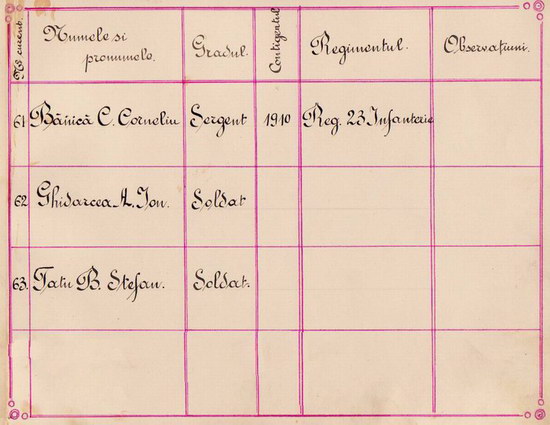 No curent.
Numele si
pronumele.
Gradul.
Contigentul
Regimentul.
Observațiuni.
61 Bănică C. Corneliu Sergent 1910 Reg. 23 Infanterie
62 Ghidarcea A. Ion. Soldat
63. Tatu B. Stefan. Soldat.